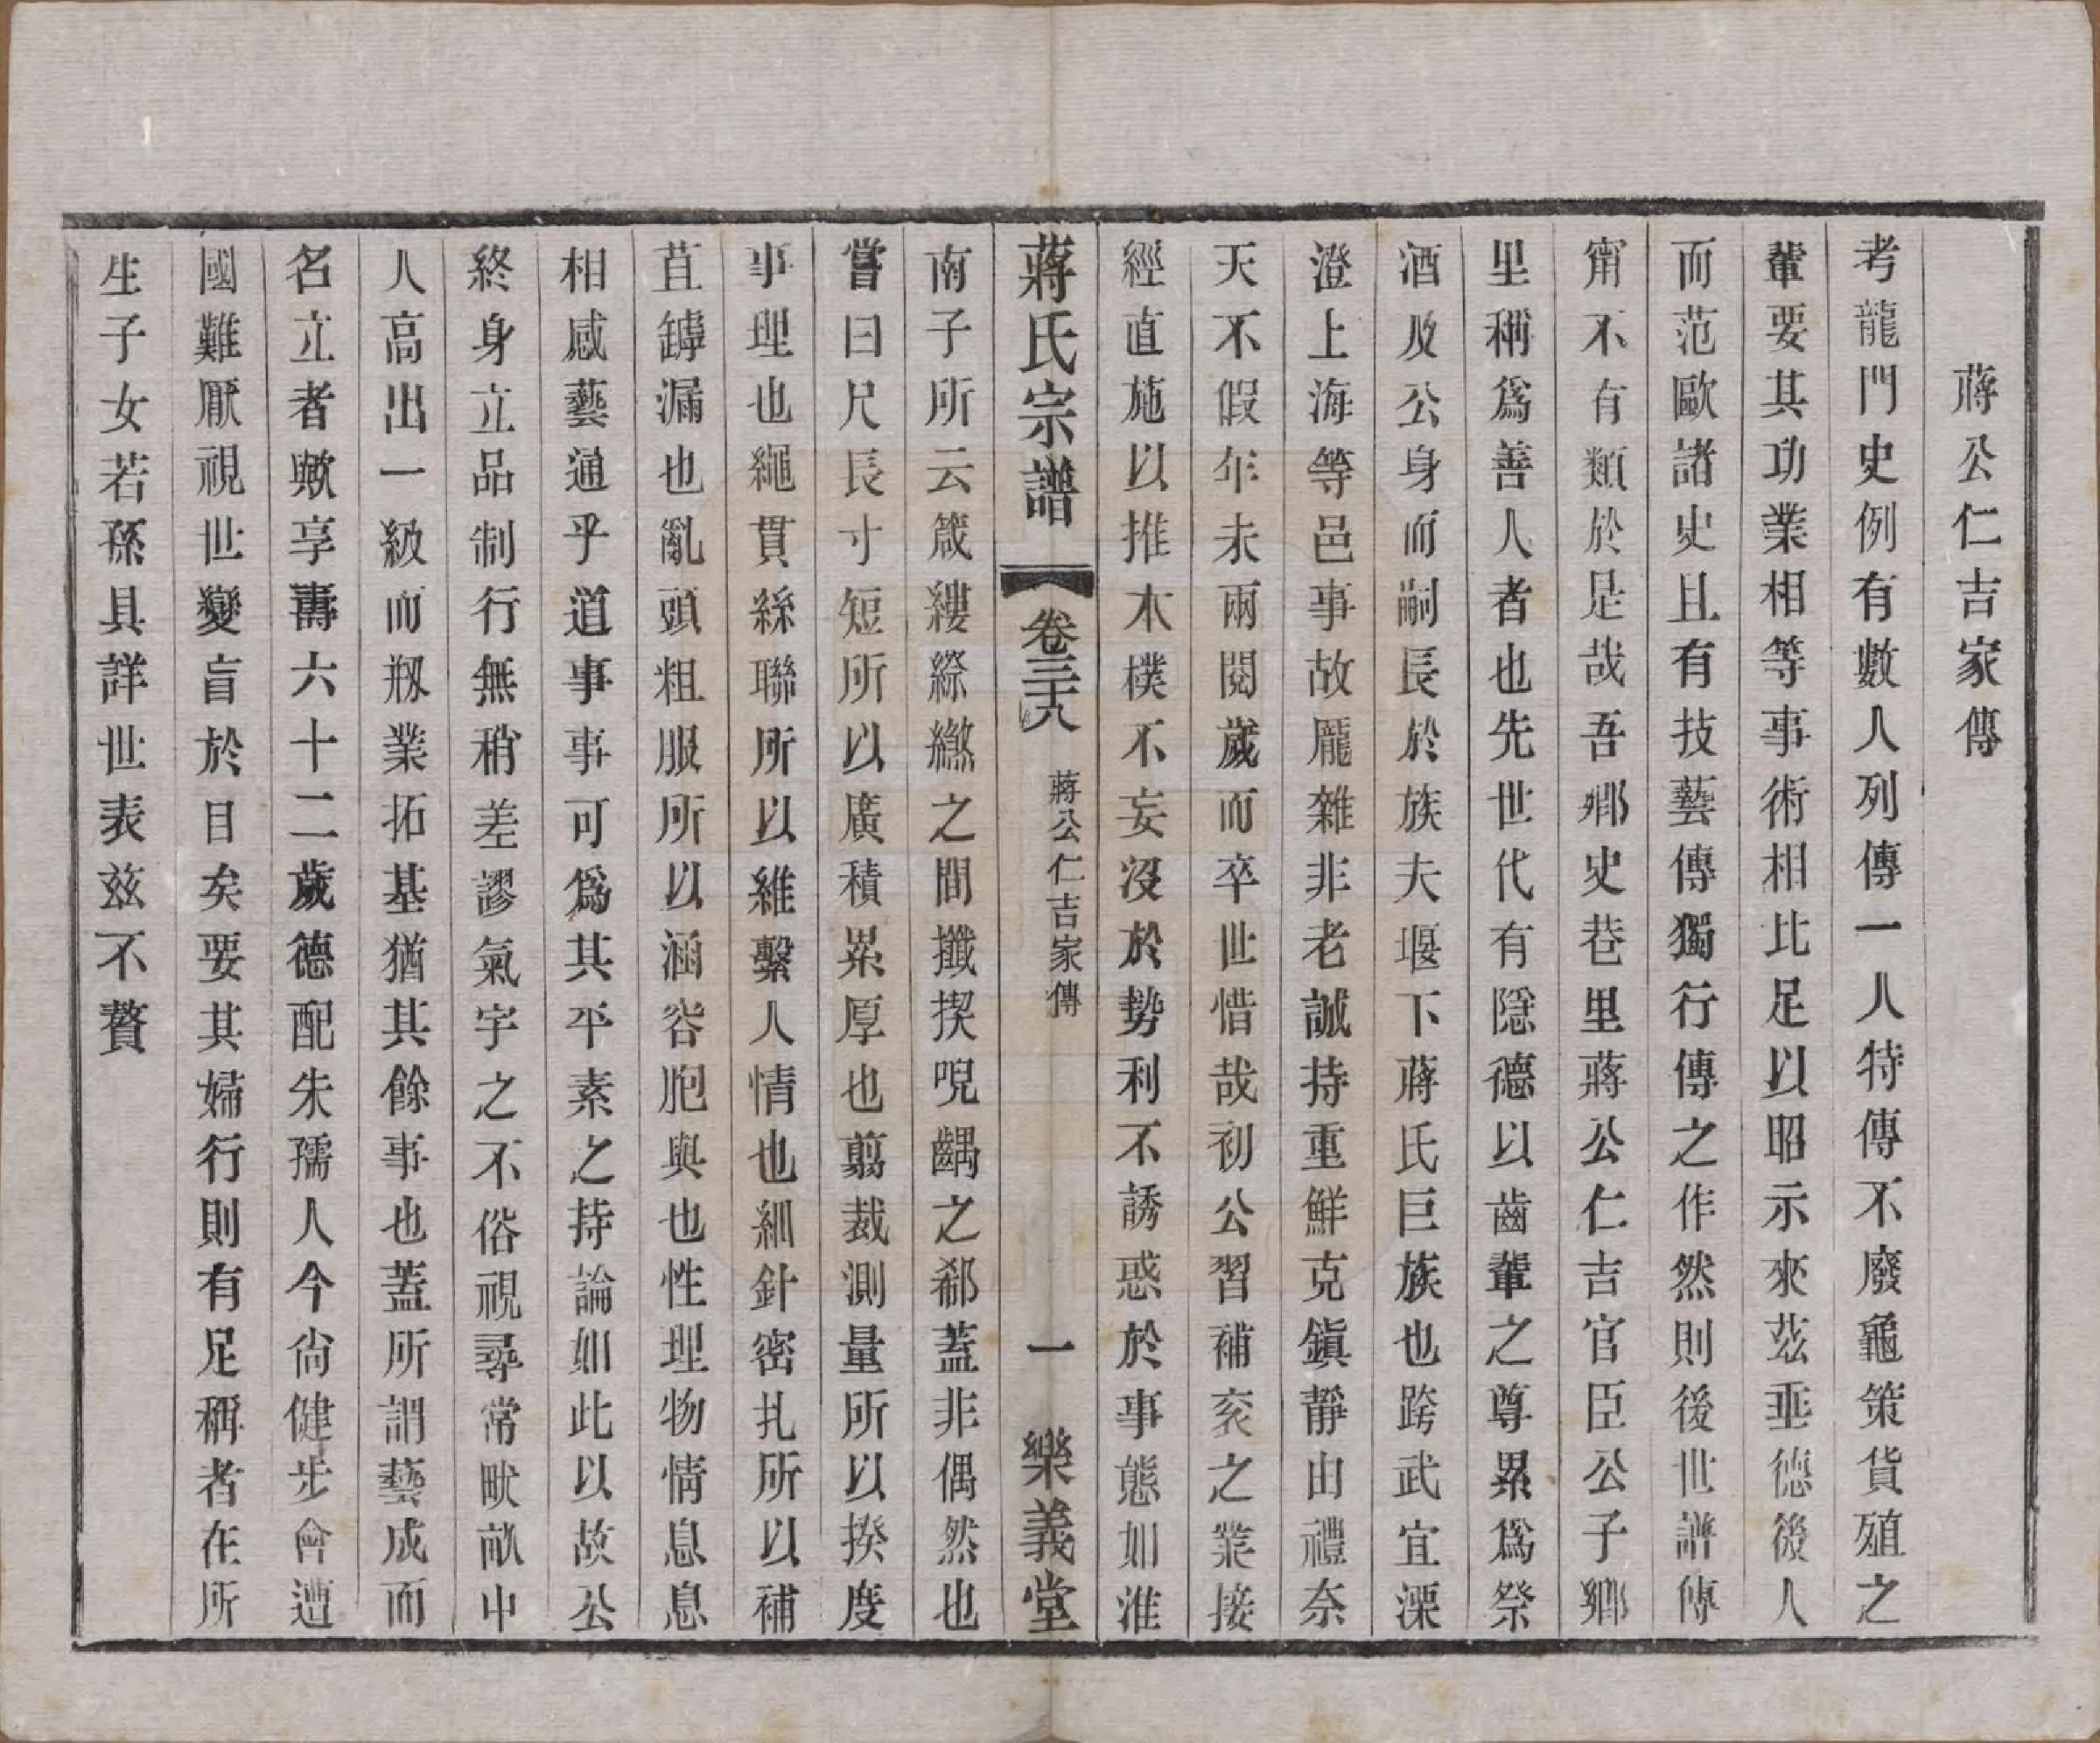 蔣公仁吉家傳
考龍門史例有數人列傳一人特傳不廢龜策貨殖之
輩要其功業相等事術相比足以昭示來茲垂德後人
而范歐諸史且有技藝傳獨行傳之作然則後世譜傳
甯不有類於是哉吾鄉史巷里蔣公仁吉官臣公子鄉
里稱爲善人者也先世代有隱德以齒輩之尊累爲祭
酒及公身而嗣長於族夫堰下蔣氏巨族也跨武宜溧
澄上海等邑事故龐雜非老誠持重鮮克鎭靜由禮奈
天不假年未兩閱歲而卒世惜哉初公習補衮之業接
經直施以推木樸不妄沒於勢利不誘惑於事態如淮
蔣氏宗譜 卷三十八 蔣公仁吉家傳 一 樂義堂
南子所云箴縷綜繳之間攕揳唲齵之郄蓋非偶然也
嘗曰尺長寸短所以廣積累厚也翦裁測量所以揆度
事理也繩貫絲聯所以維繫人情也細針密扎所以補
苴罅漏也亂頭粗服所以涵容胞與也性理物情息息
相感藝通乎道事事可爲其平素之持論如此以故公
終身立品制行無稍差謬氣宇之不俗視尋常畎畝中
人高出一級而剏業拓基猶其餘事也蓋所謂藝成而
名立者歟享壽六十二歲德配朱孺人今尙健步會遭
國難厭視世變盲於目矣要其婦行則有足稱者在所
生子女若孫具詳世表茲不贅